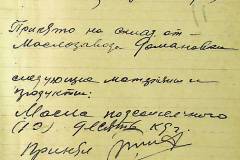 Принято на склад от
Маслозавода Романовки
следующие материалы и
продукты:
Масла подсолнечного
(10) десять кг
Принял